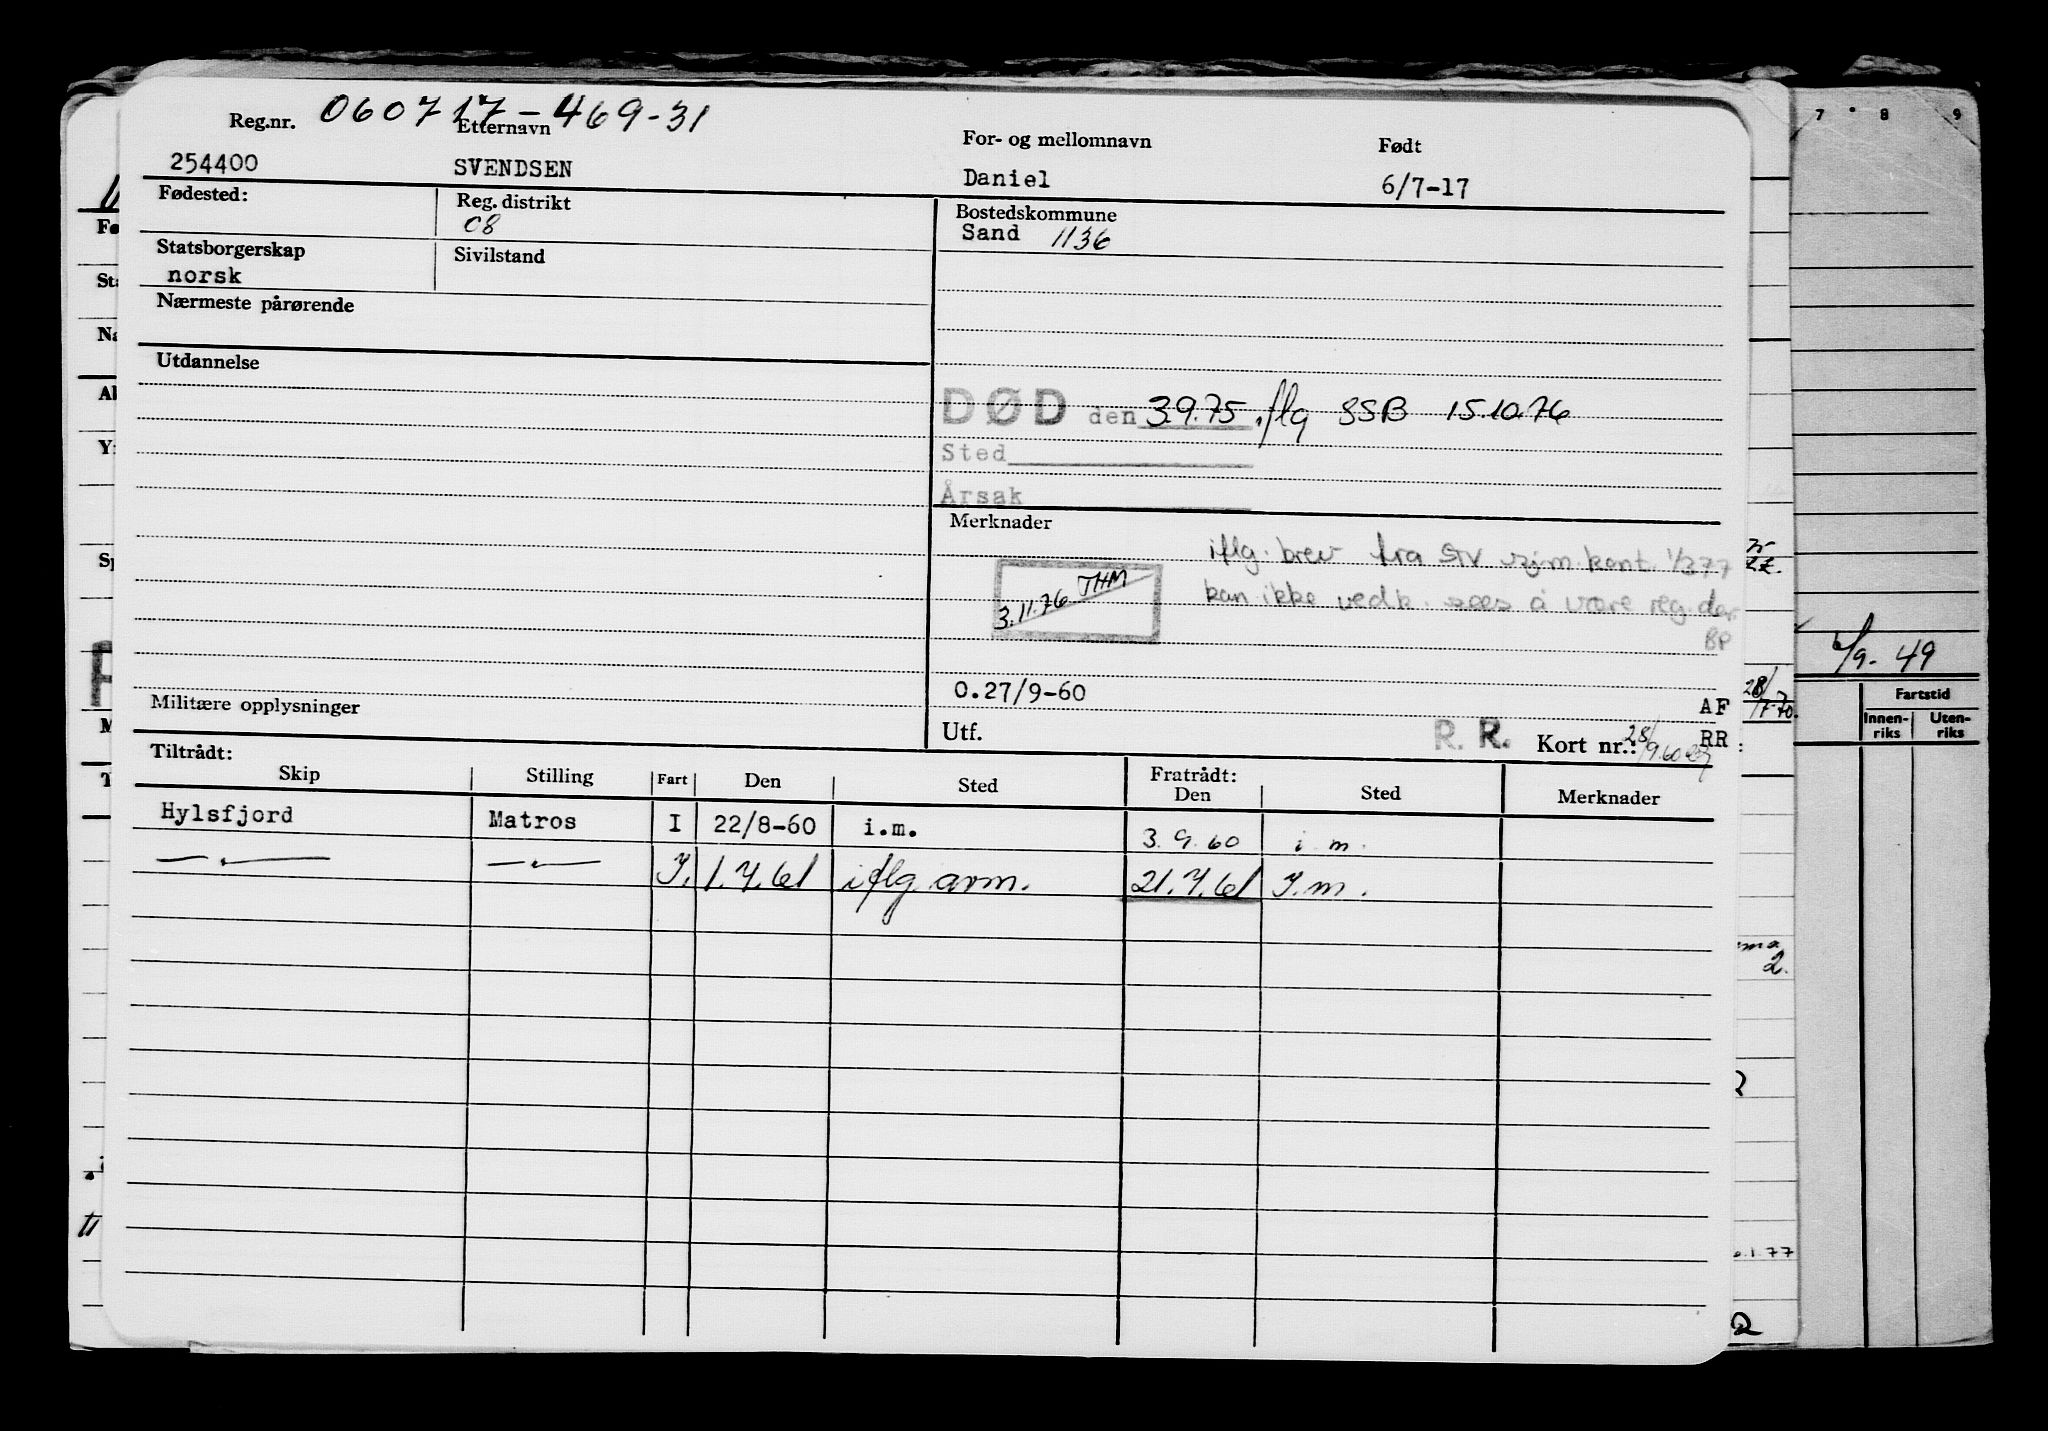 060717-469-31
Reg.nr. Etternavn For- og mellomnavn Født
254400 SVENDSEN Daniel 6/7-17
Fødested: Reg. distrikt Bostedskommune
08 Sand 1136
Statsborgerskap Sivilstand
norsk
Nærmeste pårørende
Utdannelse
DØD den 3.9.75 iflg SSB 15.10.76
Sted
Årsak
Merknader
iflg. brev fra
3.11.76 THM
kan ikke vedk. sees å være reg. der.
BP
O.27/9-60
AF
Militære opplysninger Utf. R. R. Kort nr.: RR :
Tiltrådt: Fratrådt:
Skip Stilling Fart Den Sted Den Sted Merknader
Hylsfjord Matros I 22/8-60 i.m. 3.9.60 i.m.
—"— —"— I. 1.7.61 iflg. avm. 21.7.61 I.m.
7 8 9
6/9-49
Fartstid
Innen-
riks
Uten-
riks
28/7-70.
2.
.1.77